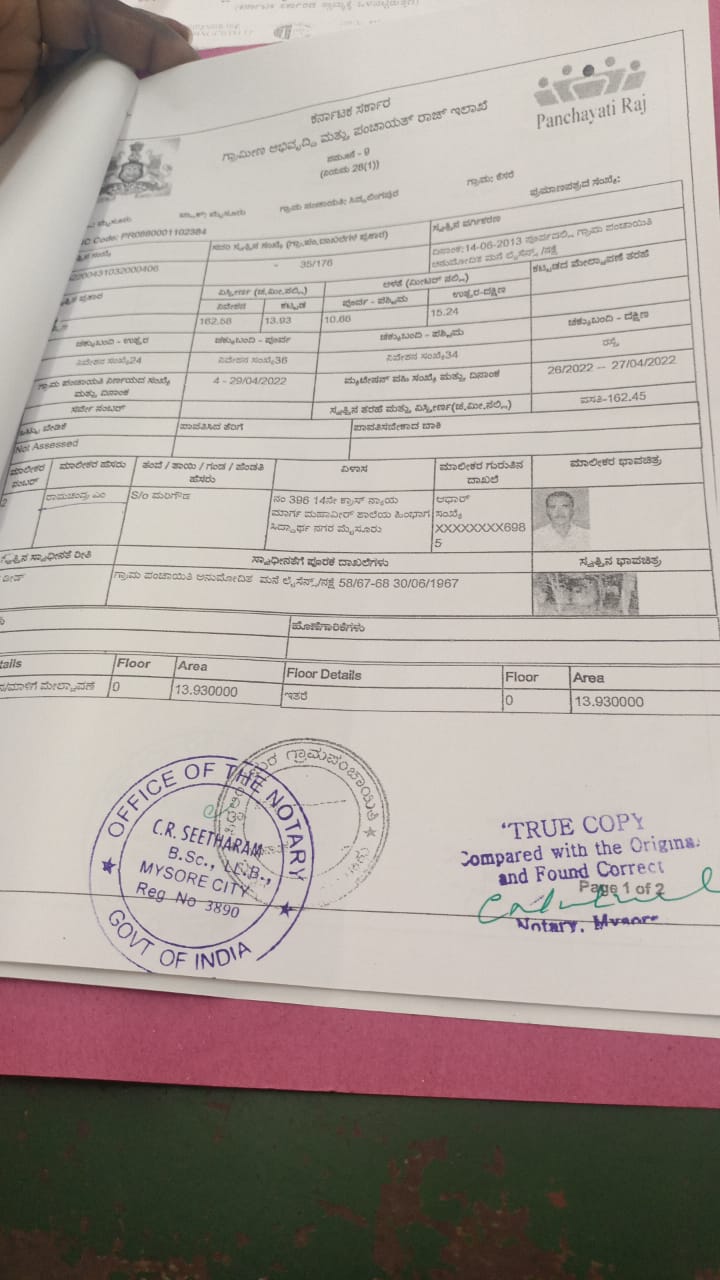 ಕರ್ನಾಟಕ ಸರ್ಕಾರ
ಗ್ರಾಮೀಣ ಅಭಿವೃದ್ದಿ ಮತ್ತು ಪಂಚಾಯತ್ ರಾಜ್ ಇಲಾಖೆ
Panchayati Raj
ನಮೂನೆ - 9
(ನಿಯಮ 28(1))
ಮೈಸೂರು ಮೈಸೂರು ಗ್ರಾಮ ಪಂಚಾಯಿತಿ: ಸಿದ್ದಲಿಂಗಪುರ ಗ್ರಾಮ: ಕೆಸರೆ ಪ್ರಮಾಣಪತ್ರದ ಸಂಖ್ಯೆ:
Code: PR0880001102384
ಸಂಖ್ಯೆ ಸದರಿ ಸ್ವತ್ತಿನ ಸಂಖ್ಯೆ (ಗ್ರಾ.ಪಂ.ದಾಖಲೆಗಳ ಪ್ರಕಾರ) ಸ್ವತ್ತಿನ ವರ್ಗೀಕರಣ
2200431032000406 - 35/176 ದಿನಾಂಕ:14-06-2013 ಪೂರ್ವದಲ್ಲಿ ಗ್ರಾಮ ಪಂಚಾಯಿತಿ
ಅನುಮೋದಿತ ಮನೆ ಲೈಸೆನ್ಸ್ /ನಕ್ಷೆ
ಪ್ರಕಾರ ವಿಸ್ತೀರ್ಣ (ಚ.ಮೀ.ನಲ್ಲಿ) ಅಳತೆ (ಮೀಟರ್ ನಲ್ಲಿ) ಕಟ್ಟಡದ ಮೇಲ್ಚಾವಣೆ ತರಹೆ
ನಿವೇಶನ ಕಟ್ಟಡ ಪೂರ್ವ - ಪಶ್ಚಿಮ ಉತ್ತರ-ದಕ್ಷಿಣ
162.56 13.93 10.66 15.24
ಚಕ್ಕುಬಂದಿ - ಉತ್ತರ ಚಕ್ಕುಬಂದಿ - ಪೂರ್ವ ಚಕ್ಕುಬಂದಿ - ಪಶ್ಚಿಮ ಚಕ್ಕುಬಂದಿ - ದಕ್ಷಿಣ
ನಿವೇಶನ ಸಂಖ್ಯೆ24 ನಿವೇಶನ ಸಂಖ್ಯೆ36 ನಿವೇಶನ ಸಂಖ್ಯೆ34 ರಸ್ತೆ
ಗ್ರಾಮ ಪಂಚಾಯಿತಿ ನಿರ್ಣಯದ ಸಂಖ್ಯೆ
ಮತ್ತು ದಿನಾಂಕ 4 - 29/04/2022 ಮ್ಯುಟೇಷನ್ ವಹಿ ಸಂಖ್ಯೆ ಮತ್ತು ದಿನಾಂಕ 26/2022 -- 27/04/2022
ಸರ್ವೇ ನಂಬರ್ ಸ್ವತ್ತಿನ ತರಹೆ ಮತ್ತು ವಿಸ್ತೀರ್ಣ(ಚ.ಮೀ.ನಲ್ಲಿ) ವಸತಿ-162.45
ಒಟ್ಟು ಬೇಡಿಕೆ ಪಾವತಿಸಿದ ತೆರಿಗೆ ಪಾವತಿಸಬೇಕಾದ ಬಾಕಿ
Not Assessed
ಮಾಲೀಕರ ನಂಬರ್ ಮಾಲೀಕರ ಹೆಸರು ತಂದೆ / ತಾಯಿ / ಗಂಡ / ಹೆಂಡತಿ ಹೆಸರು ವಿಳಾಸ ಮಾಲೀಕರ ಗುರುತಿನ ದಾಖಲೆ ಮಾಲೀಕರ ಭಾವಚಿತ್ರ
2 ರಾಮಚಂದ್ರ ಎಂ S/o ಮರಿಗೌಡ ನಂ 396 14ನೇ ಕ್ರಾಸ್ ನ್ಯಾಯ ಆಧಾರ್
ಮಾರ್ಗ ಮಹಾವೀರ್ ಶಾಲೆಯ ಹಿಂಭಾಗ ಸಂಖ್ಯೆ
ಸಿದ್ದಾರ್ಥ ನಗರ ಮೈಸೂರು XXXXXXXX698
5
ಸ್ವತ್ತಿನ ಸ್ವಾಧೀನತೆ ರೀತಿ ಸ್ವಾಧೀನತೆಗೆ ಪೂರಕ ದಾಖಲೆಗಳು ಸ್ವತ್ತಿನ ಭಾವಚಿತ್ರ
ಡೀಡ್ ಗ್ರಾಮ ಪಂಚಾಯಿತಿ ಅನುಮೋದಿತ ಮನೆ ಲೈಸೆನ್ಸ್ /ನಕ್ಷೆ 58/67-68 30/06/1967
ಹೊಣೆಗಾರಿಕೆಗಳು
Floor Area Floor Details Floor Area
ಮೇಲ್ಚಾವಣೆ 0 13.930000 ಇತರೆ 0 13.930000
OFFICE OF THE NOTARY
C.R. SEETHARAM
B.Sc., LL.B.,
MYSORE CITY
Reg No 3890
GOVT OF INDIA
ಗ್ರಾಮಪಂಚಾಯಿತಿ
'TRUE COPY
Compared with the Original
and Found Correct
Page 1 of 2
Notary, Mysore